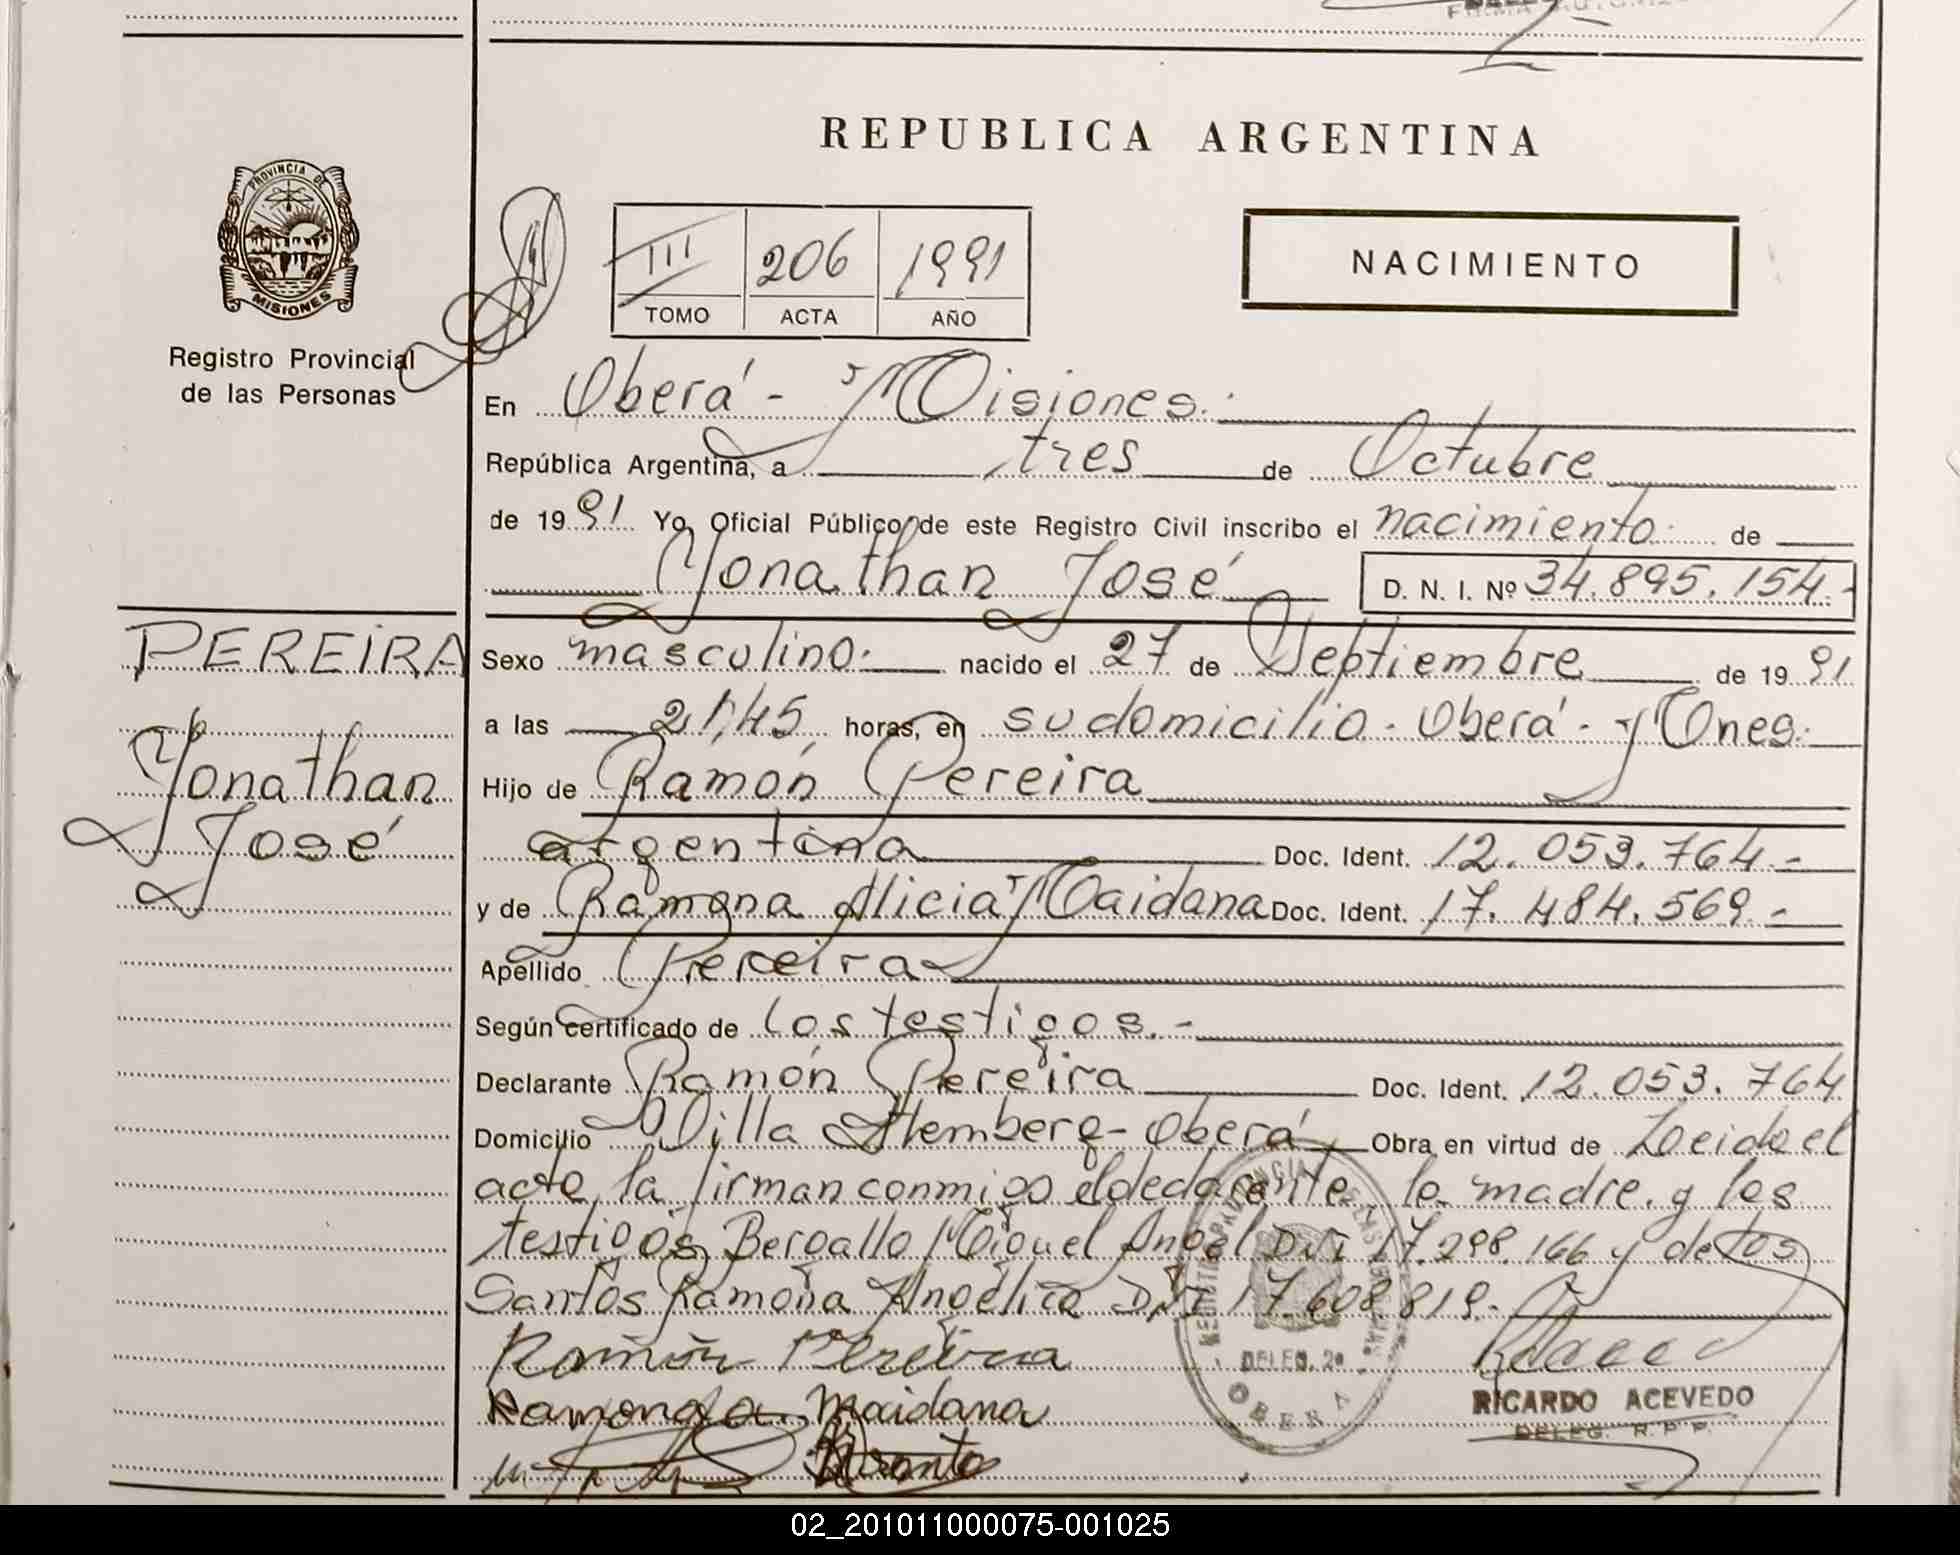 REPUBLICA ARGENTINA
PROVINCIA DE
MISIONES
Registro Provincial
de las Personas
III 206 1991
TOMO ACTA AÑO
NACIMIENTO
En Oberá - Misiones.
República Argentina, a tres de Octubre
de 1991 Yo, Oficial Público de este Registro Civil inscribo el nacimiento de
Yonathan José D. N. I. Nº 34.895.154.-
PEREIRA
Yonathan
José
Sexo masculino. nacido el 27 de Septiembre de 1991
a las 21,45 horas, en su domicilio - Oberá - Mnes.
Hijo de Ramón Pereira
argentina Doc. Ident. 12.053.764.-
y de Ramona Alicia Maidana Doc. Ident. 17.484.569.-
Apellido Pereira
Según certificado de los testigos.-
Declarante Ramón Pereira Doc. Ident. 12.053.764
Domicilio Villa Stemberg - Oberá Obra en virtud de Leida el
acta, la firman conmigo el declarante, la madre, y los
testigos Bergallo Miguel Angel DNI 17.298.166 y de los
Santos Ramona Angélica DNI 17.608.819.-
Ramón Pereira
Ramona A. Maidana
DELEG.
OBERA
RICARDO ACEVEDO
DELEG. R.P.P.
02_201011000075-001025